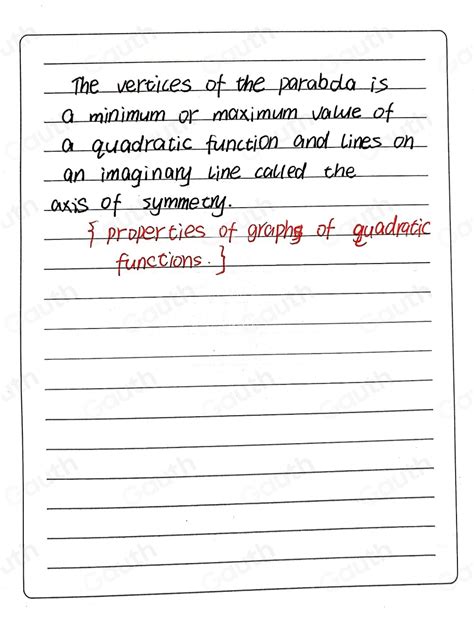 The vertices of the parabola is
a minimum or maximum value of
a quadratic function and lines on
an imaginary line called the
axis of symmetry.
{ properties of graphs of quadratic
functions. }